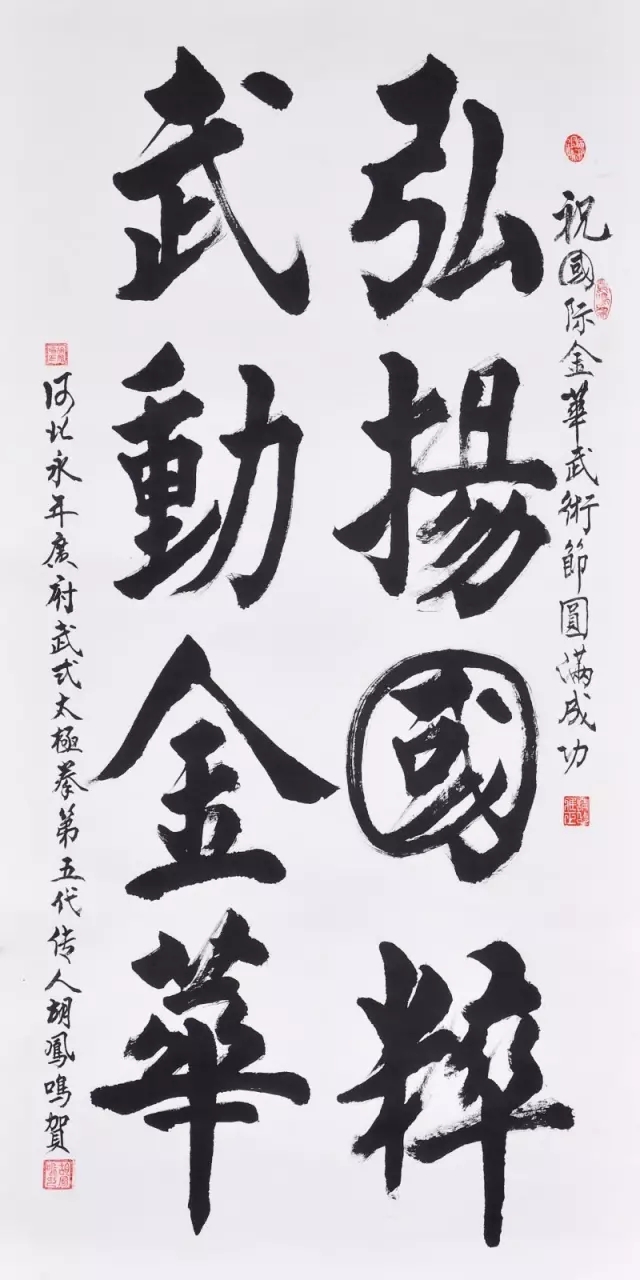 祝國际金華武術節圓满成功
弘揚國粹
武動金華
河北永年廣府武式太極拳第五代传人胡鳳鳴賀